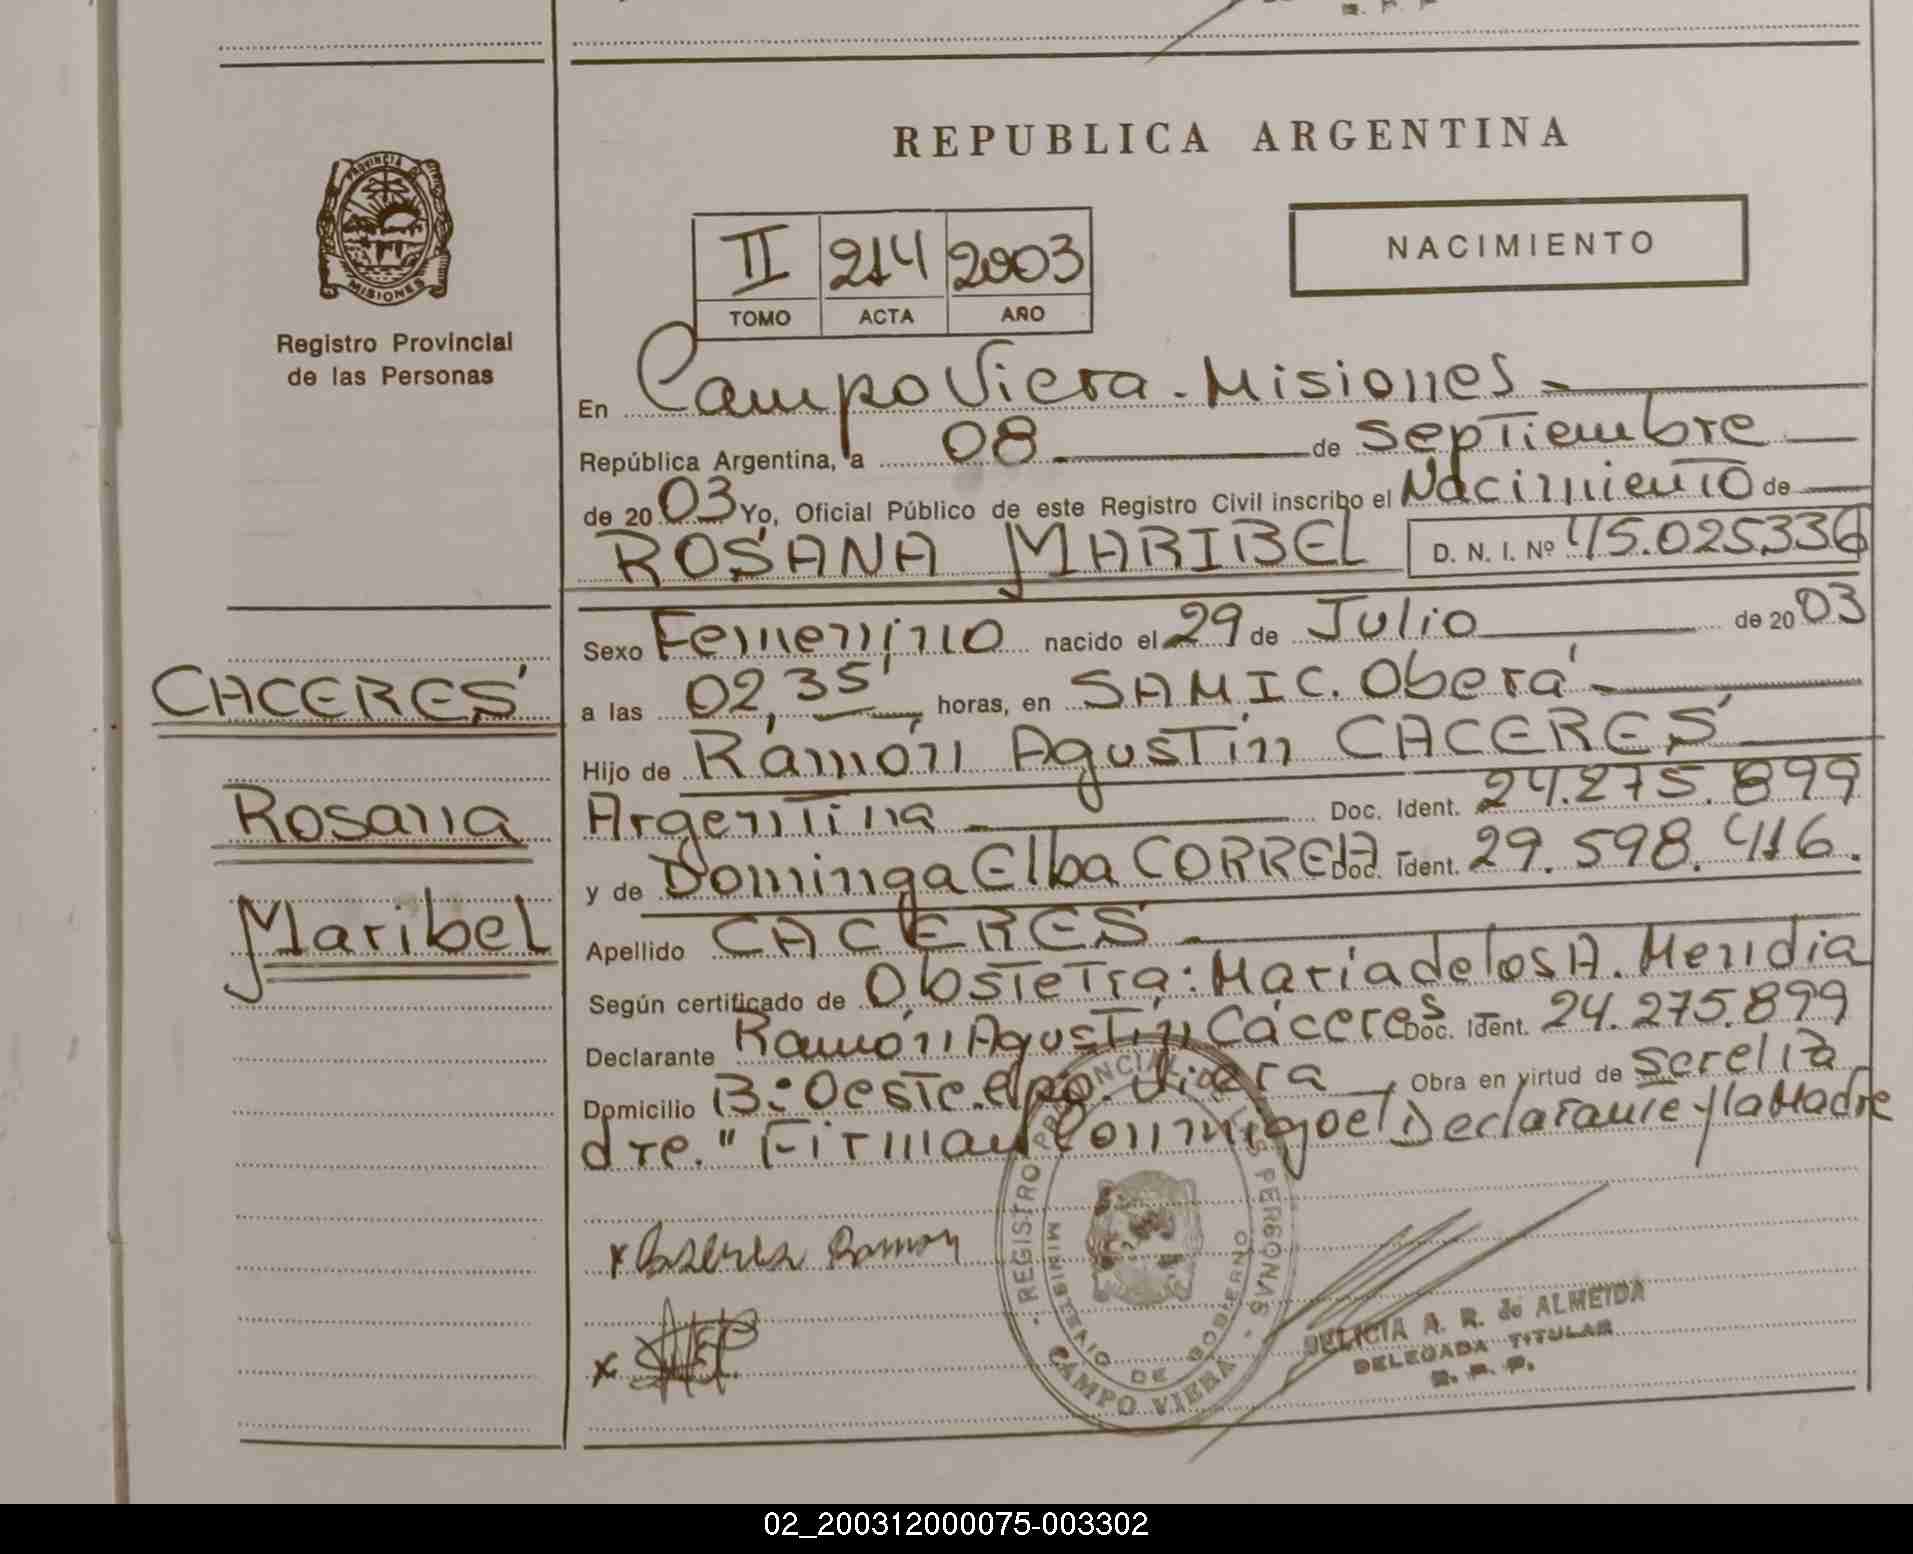 REPUBLICA ARGENTINA
PROVINCIA DE
MISIONES
Registro Provincial
de las Personas
II 214 2003
TOMO ACTA AÑO
NACIMIENTO
En Campo Viera - Misiones -
República Argentina, a 08 de septiembre
de 2003 Yo, Oficial Público de este Registro Civil inscribo el Nacimiento de
ROSANA MARIBEL D. N. I. Nº 45.025336
Sexo Femenino nacido el 29 de Julio de 2003
CACERES
a las 02,35' horas, en SAMIC. Oberá -
Hijo de Ramón Agustín CACERES
Rosana
Argentina Doc. Ident. 24.275.899
y de Dominga Elba CORREA Doc. Ident. 29.598.416.
Maribel
Apellido CACERES -
Según certificado de Obstetra: Maria de los A. Mendia
Declarante Ramón Agustín Cáceres Doc. Ident. 24.275.899
Domicilio B: Oeste. Cpo. Viera, Obra en virtud de ser el Pa
dre." Firman Conmigo el Declarante y la Madre
x Caseres Ramon
x
REGISTRO PROVINCIAL DE LAS PERSONAS
MINISTERIO DE GOBIERNO
CAMPO VIERA
DELICIA A. R. de ALMEIDA
DELEGADA TITULAR
R. P. P.
02_200312000075-003302